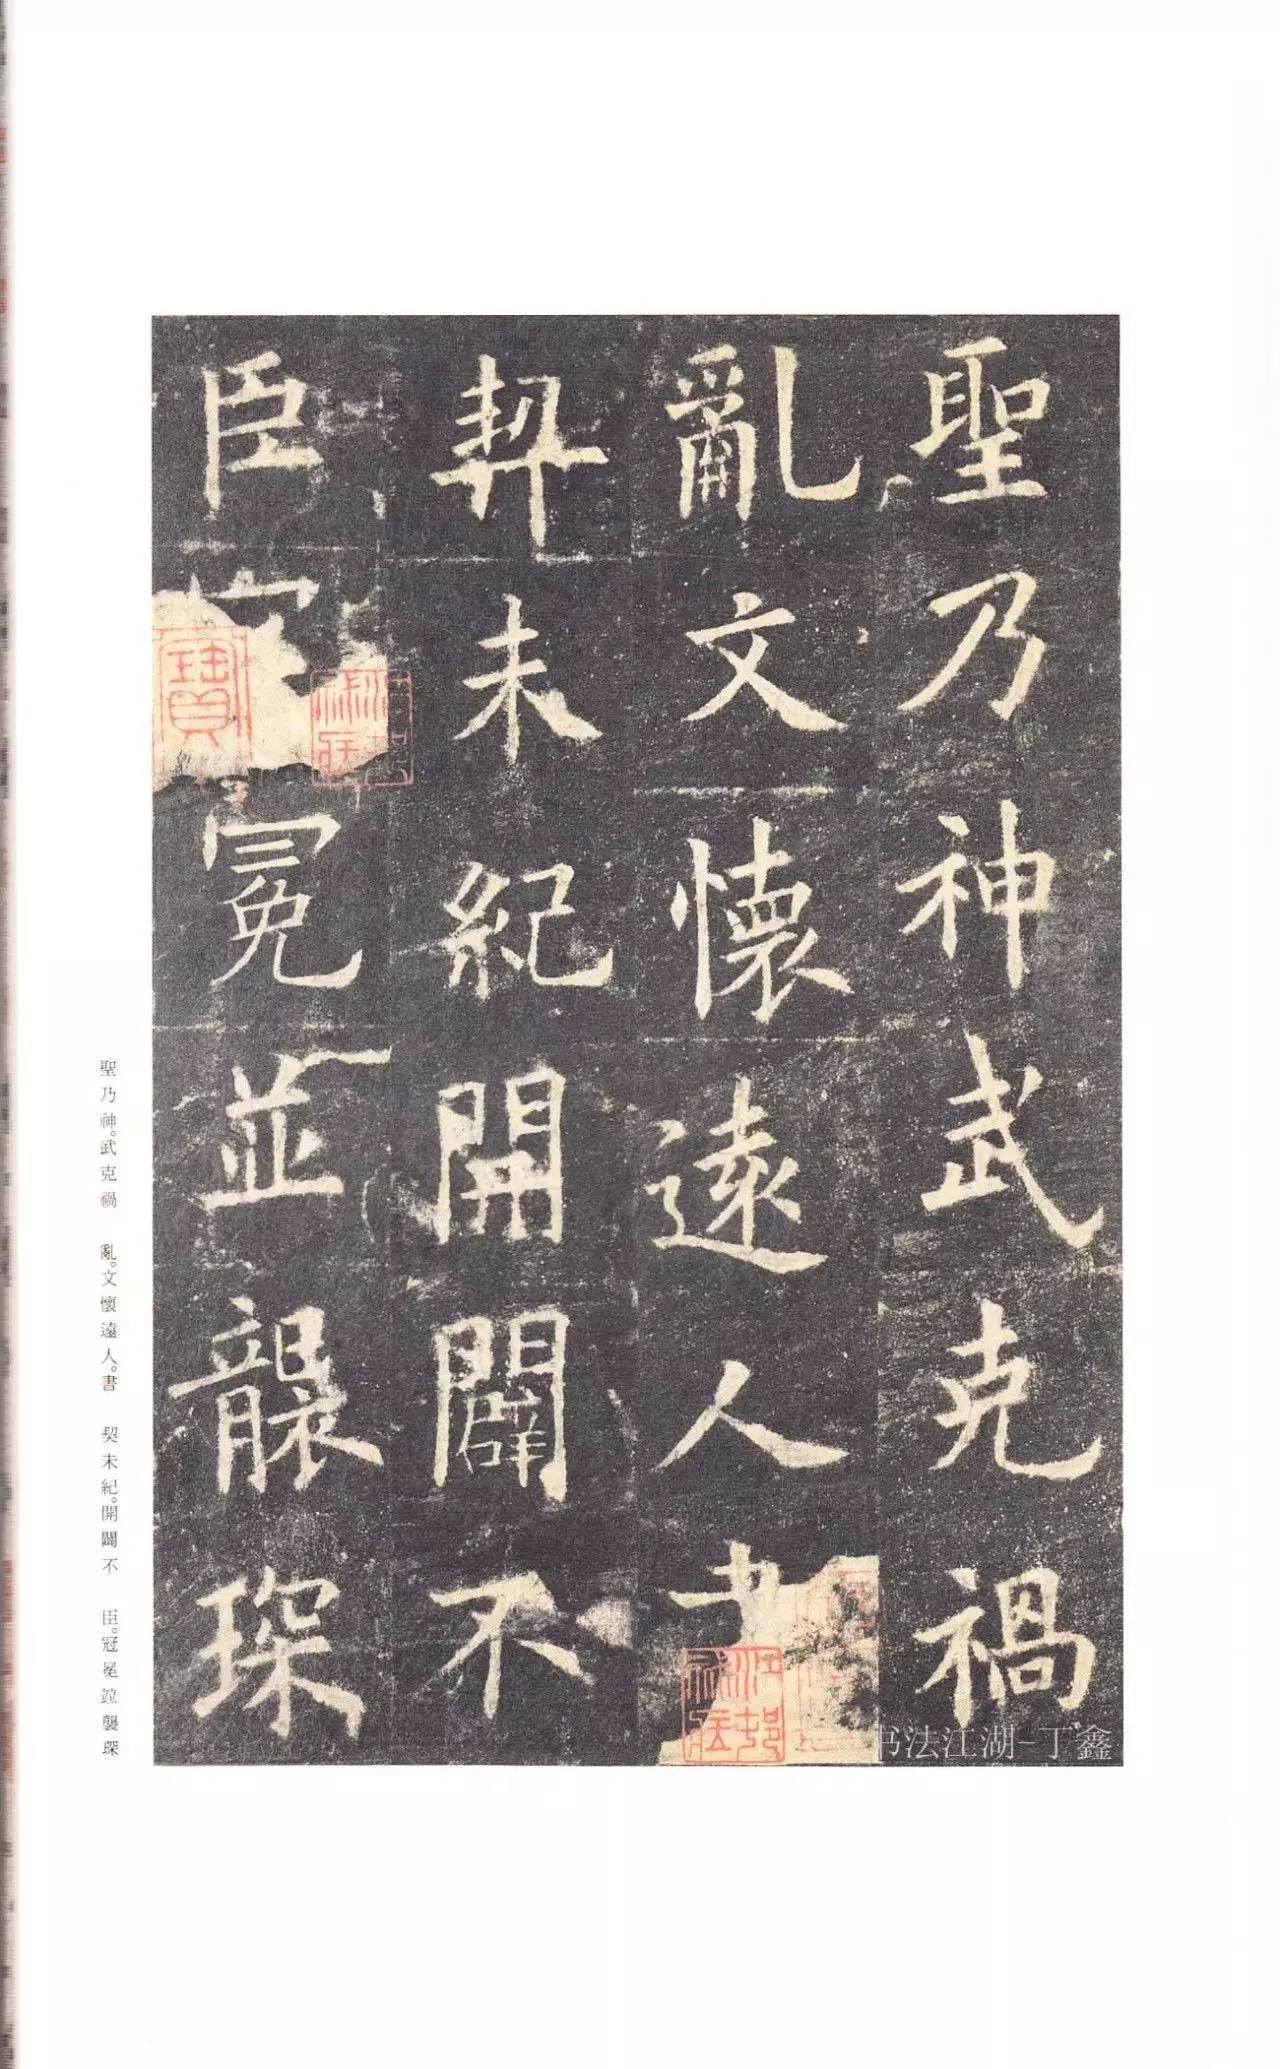 聖乃神武克禍
亂文懷遠人書
契未紀開闢不
臣冠冕並襲琛
聖乃神。武克禍　亂。文懷遠人。書　契未紀。開闢不　臣。冠冕竝襲琛
寶
书法江湖-丁鑫